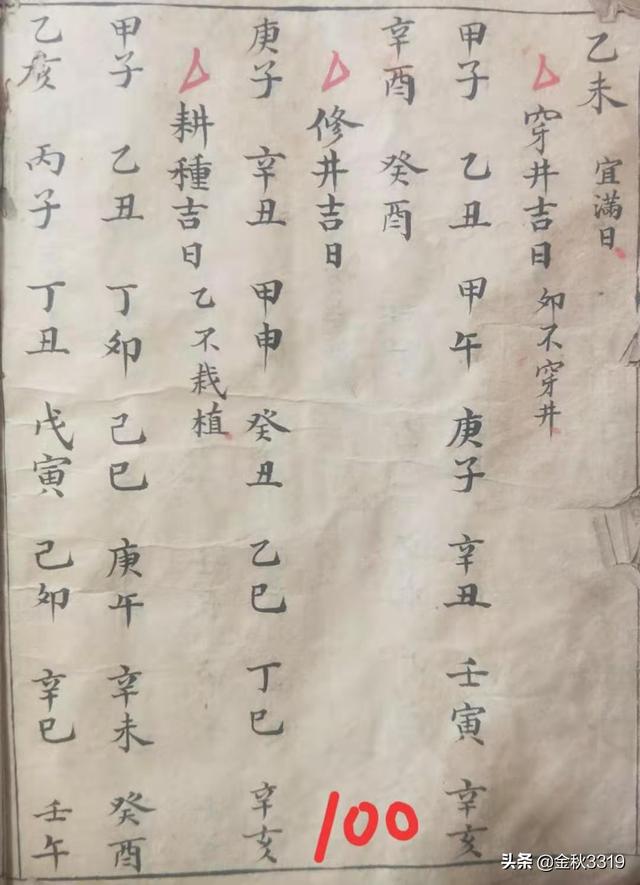 乙未 宜滿日
穿井吉日 卯不穿井
甲子 乙丑 甲午 庚子 辛丑 壬寅 辛亥
辛酉 癸酉
修井吉日
庚子 辛丑 甲申 癸丑 乙巳 丁巳 辛亥
耕種吉日 乙不栽植
甲子 乙丑 丁卯 己巳 庚午 辛未 癸酉
乙亥 丙子 丁丑 戊寅 己卯 辛巳 壬午
100
头条 @金秋3319